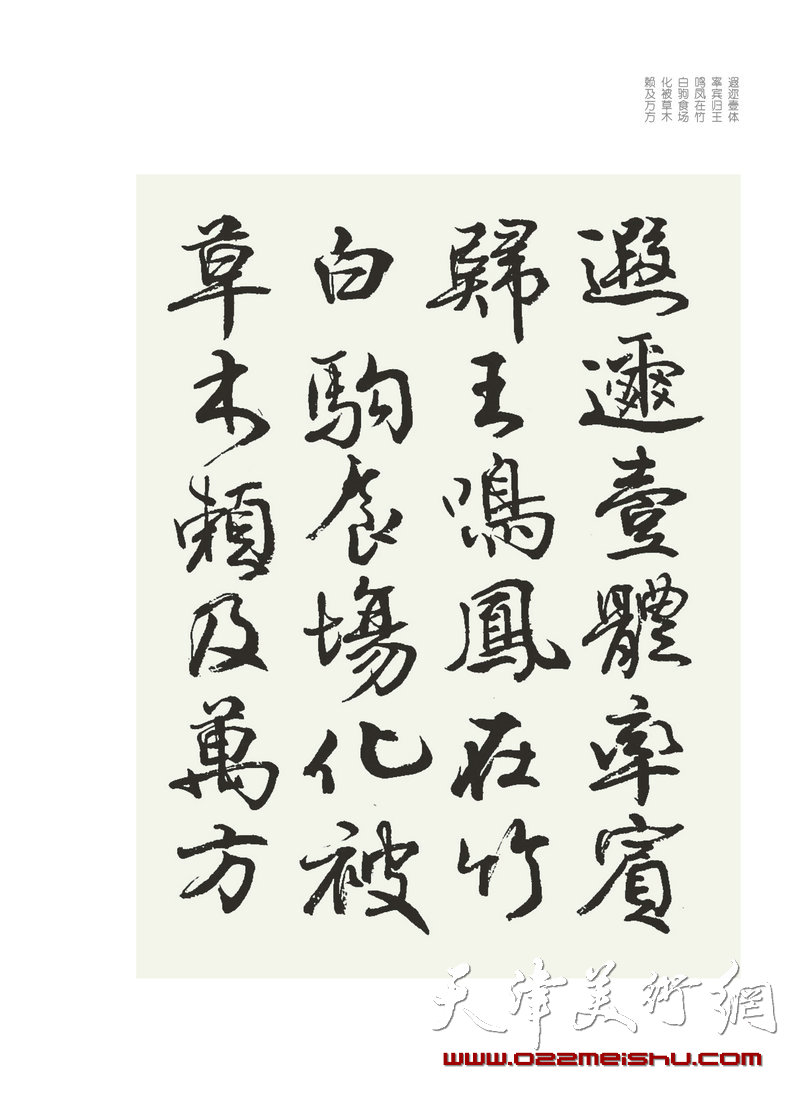 遐迩壹体
率宾归王
鸣凤在竹
白驹食场
化被草木
赖及万方
遐邇壹體率賓
歸王鳴鳳在竹
白駒食場化被
草木賴及萬方
天津美術網
www.022meishu.com